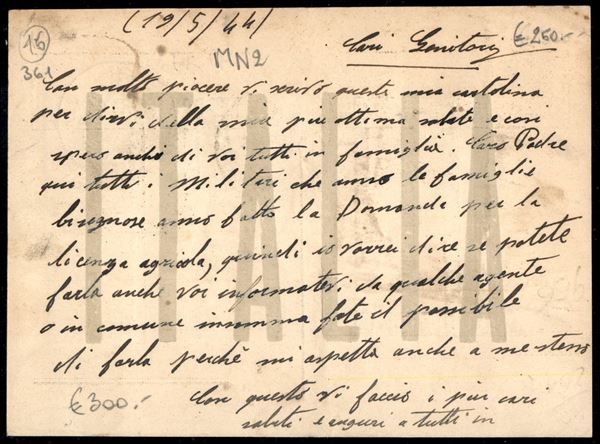 (19/5/44)
16
361
MN2
Cari Genitori
€ 250.-
Con molto piacere vi scrivo questa mia cartolina
per dirvi della mia più ottima salute e così
spero anche di voi tutti in famiglia. Caro Padre
qui tutti i Militari che anno le famiglie
bisognose anno fatto la Domanda per la
licenza agricola, quindi io vorrei dire se potete
farla anche voi informatevi da qualche agente
o in comune insomma fate il possibile
di farla perchè mi aspetta anche a me stesso
Con questo vi faccio i più cari
saluti e auguri a tutti in
€ 300.-
ITALIA